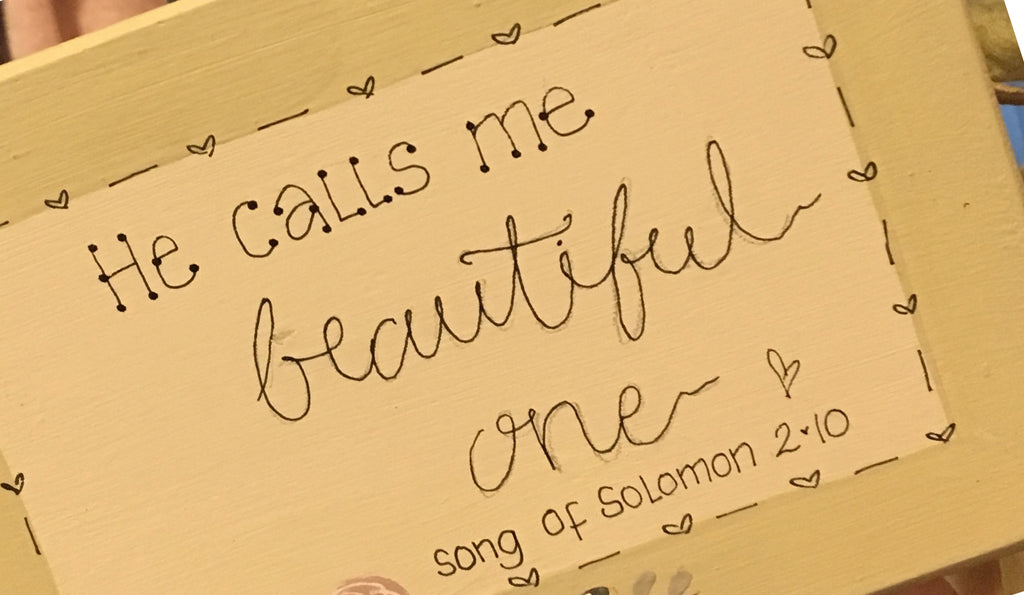 He calls me
beautiful
one
song of Solomon 2:10